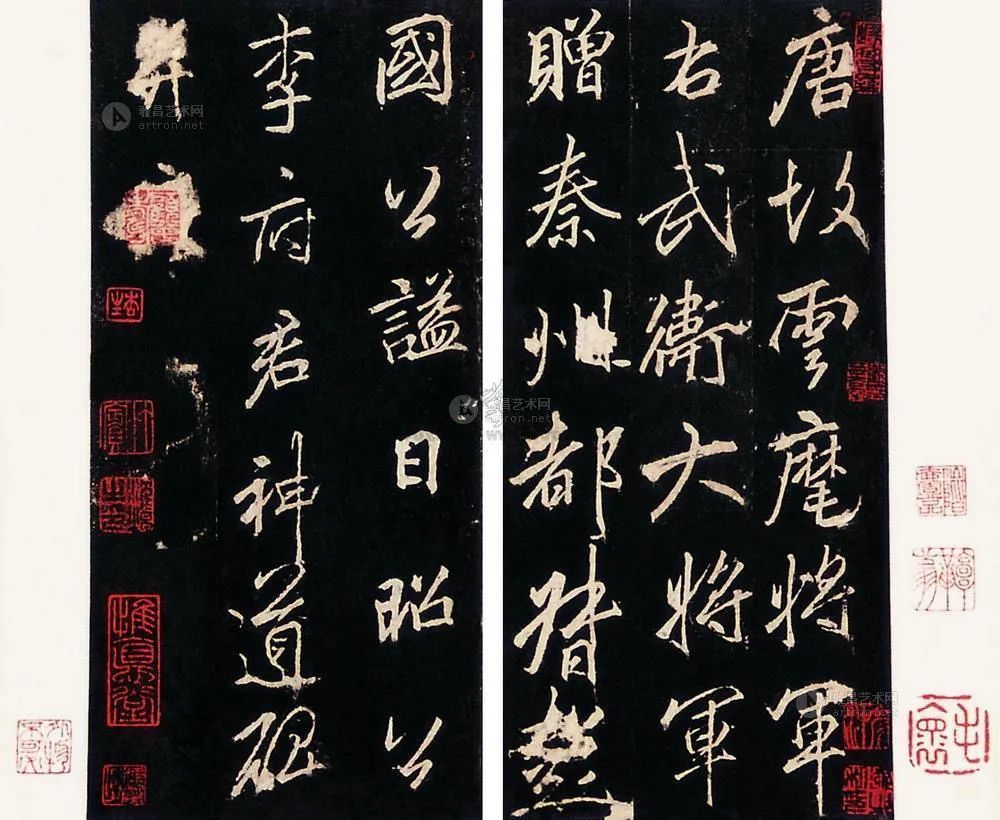 唐故雲麾將軍
右武衛大將軍
贈秦州都督
國公謚曰昭公
李府君神道碑
并
雅昌艺术网
artron.net